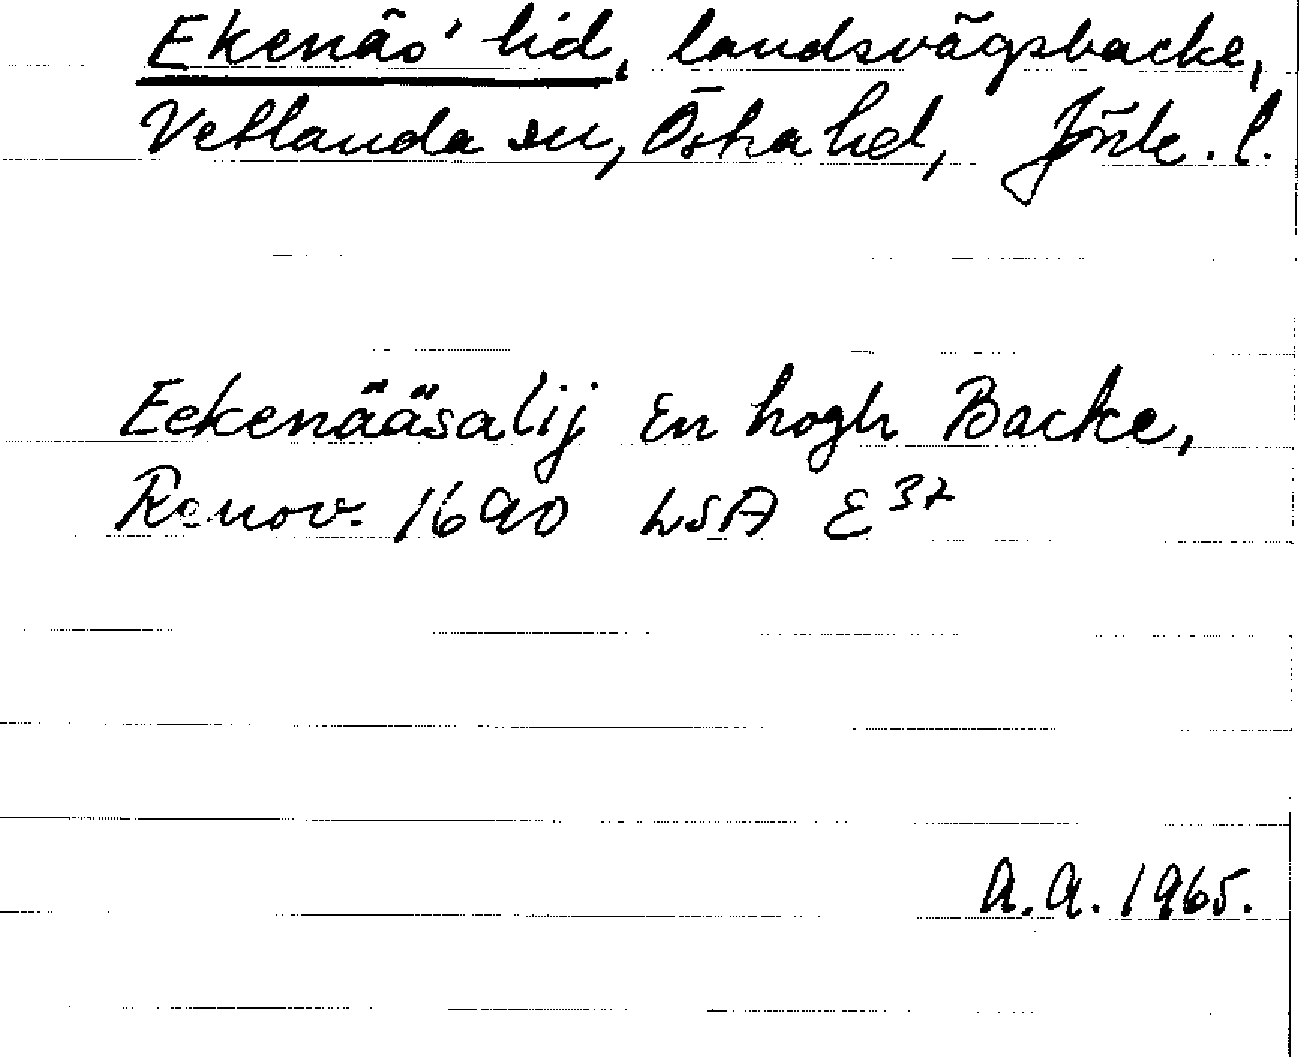 Ekenäs' lid, landsvägsbacke,
Vetlanda sn, Östra hd, Jönk. l.
Eekenääsalij En hogh Backe,
Renov. 1690 LSA E 37
A.A. 1965.